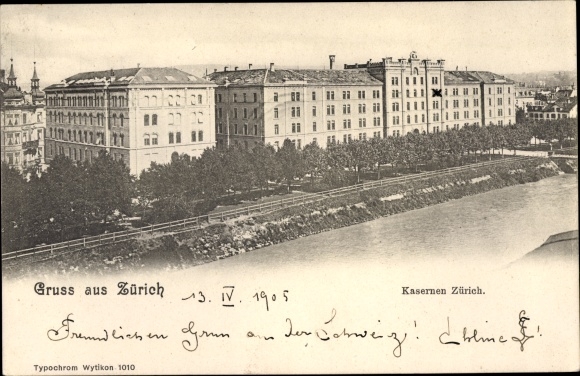 Gruss aus Zürich 13. IV. 1905 Kasernen Zürich.
Freundlichen Gruss aus der Schweiz!
Typochrom Wytikon 1010